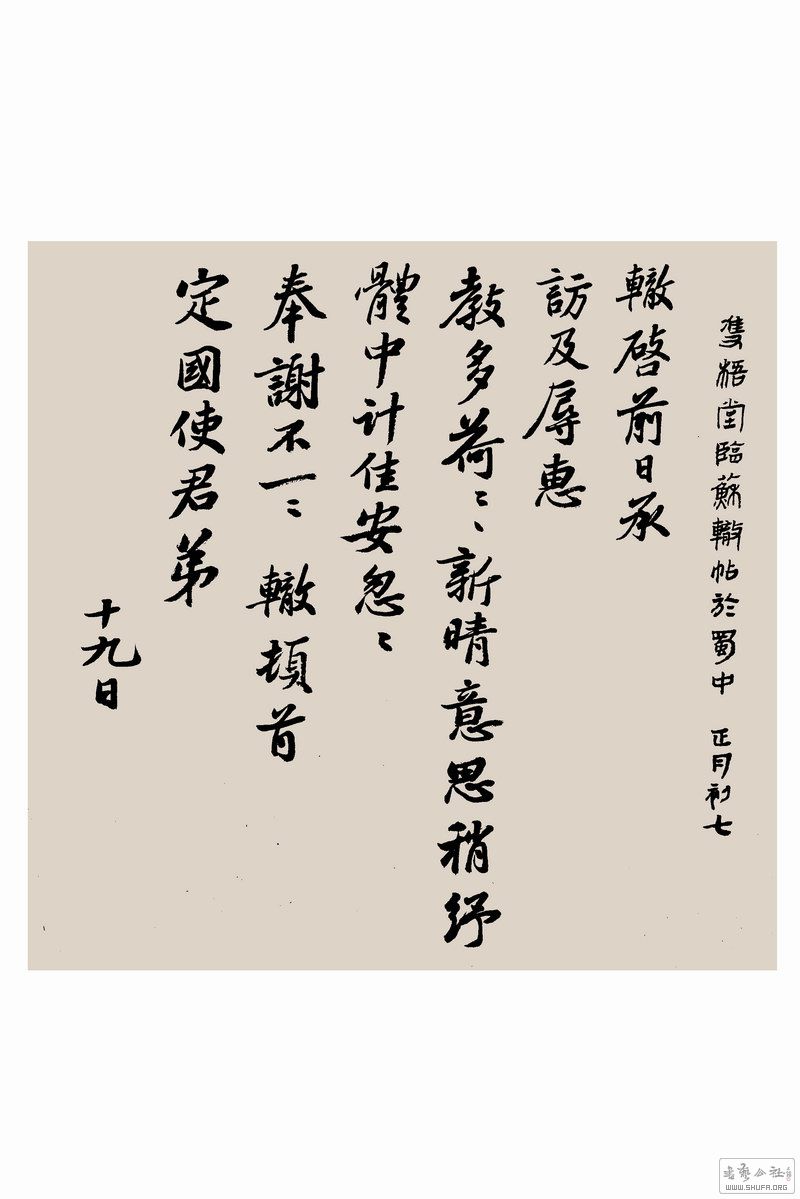 隻梧堂臨蘇轍帖於蜀中 正月初七
轍啓前日承
訪及辱惠
教多荷〻、新晴意思稍紓
體中計佳安忽〻
奉謝不一〻 轍頓首
定國使君弟
十九日
書藝公社
WWW.SHUFA.ORG